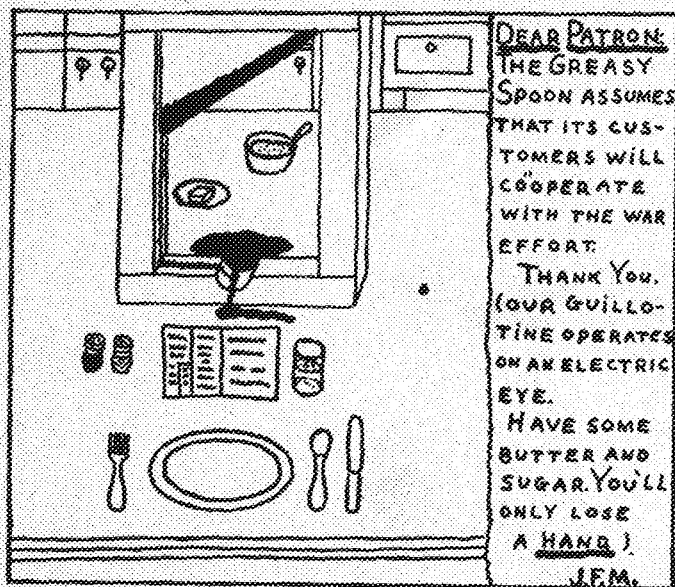 DEAR PATRON:
THE GREASY
SPOON ASSUMES
THAT ITS CUS-
TOMERS WILL
COÖPERATE
WITH THE WAR
EFFORT.
THANK YOU.
(OUR GUILLO-
TINE OPERATES
ON AN ELECTRIC
EYE.
HAVE SOME
BUTTER AND
SUGAR. YOU'LL
ONLY LOSE
A HAND.)
J.F.M.